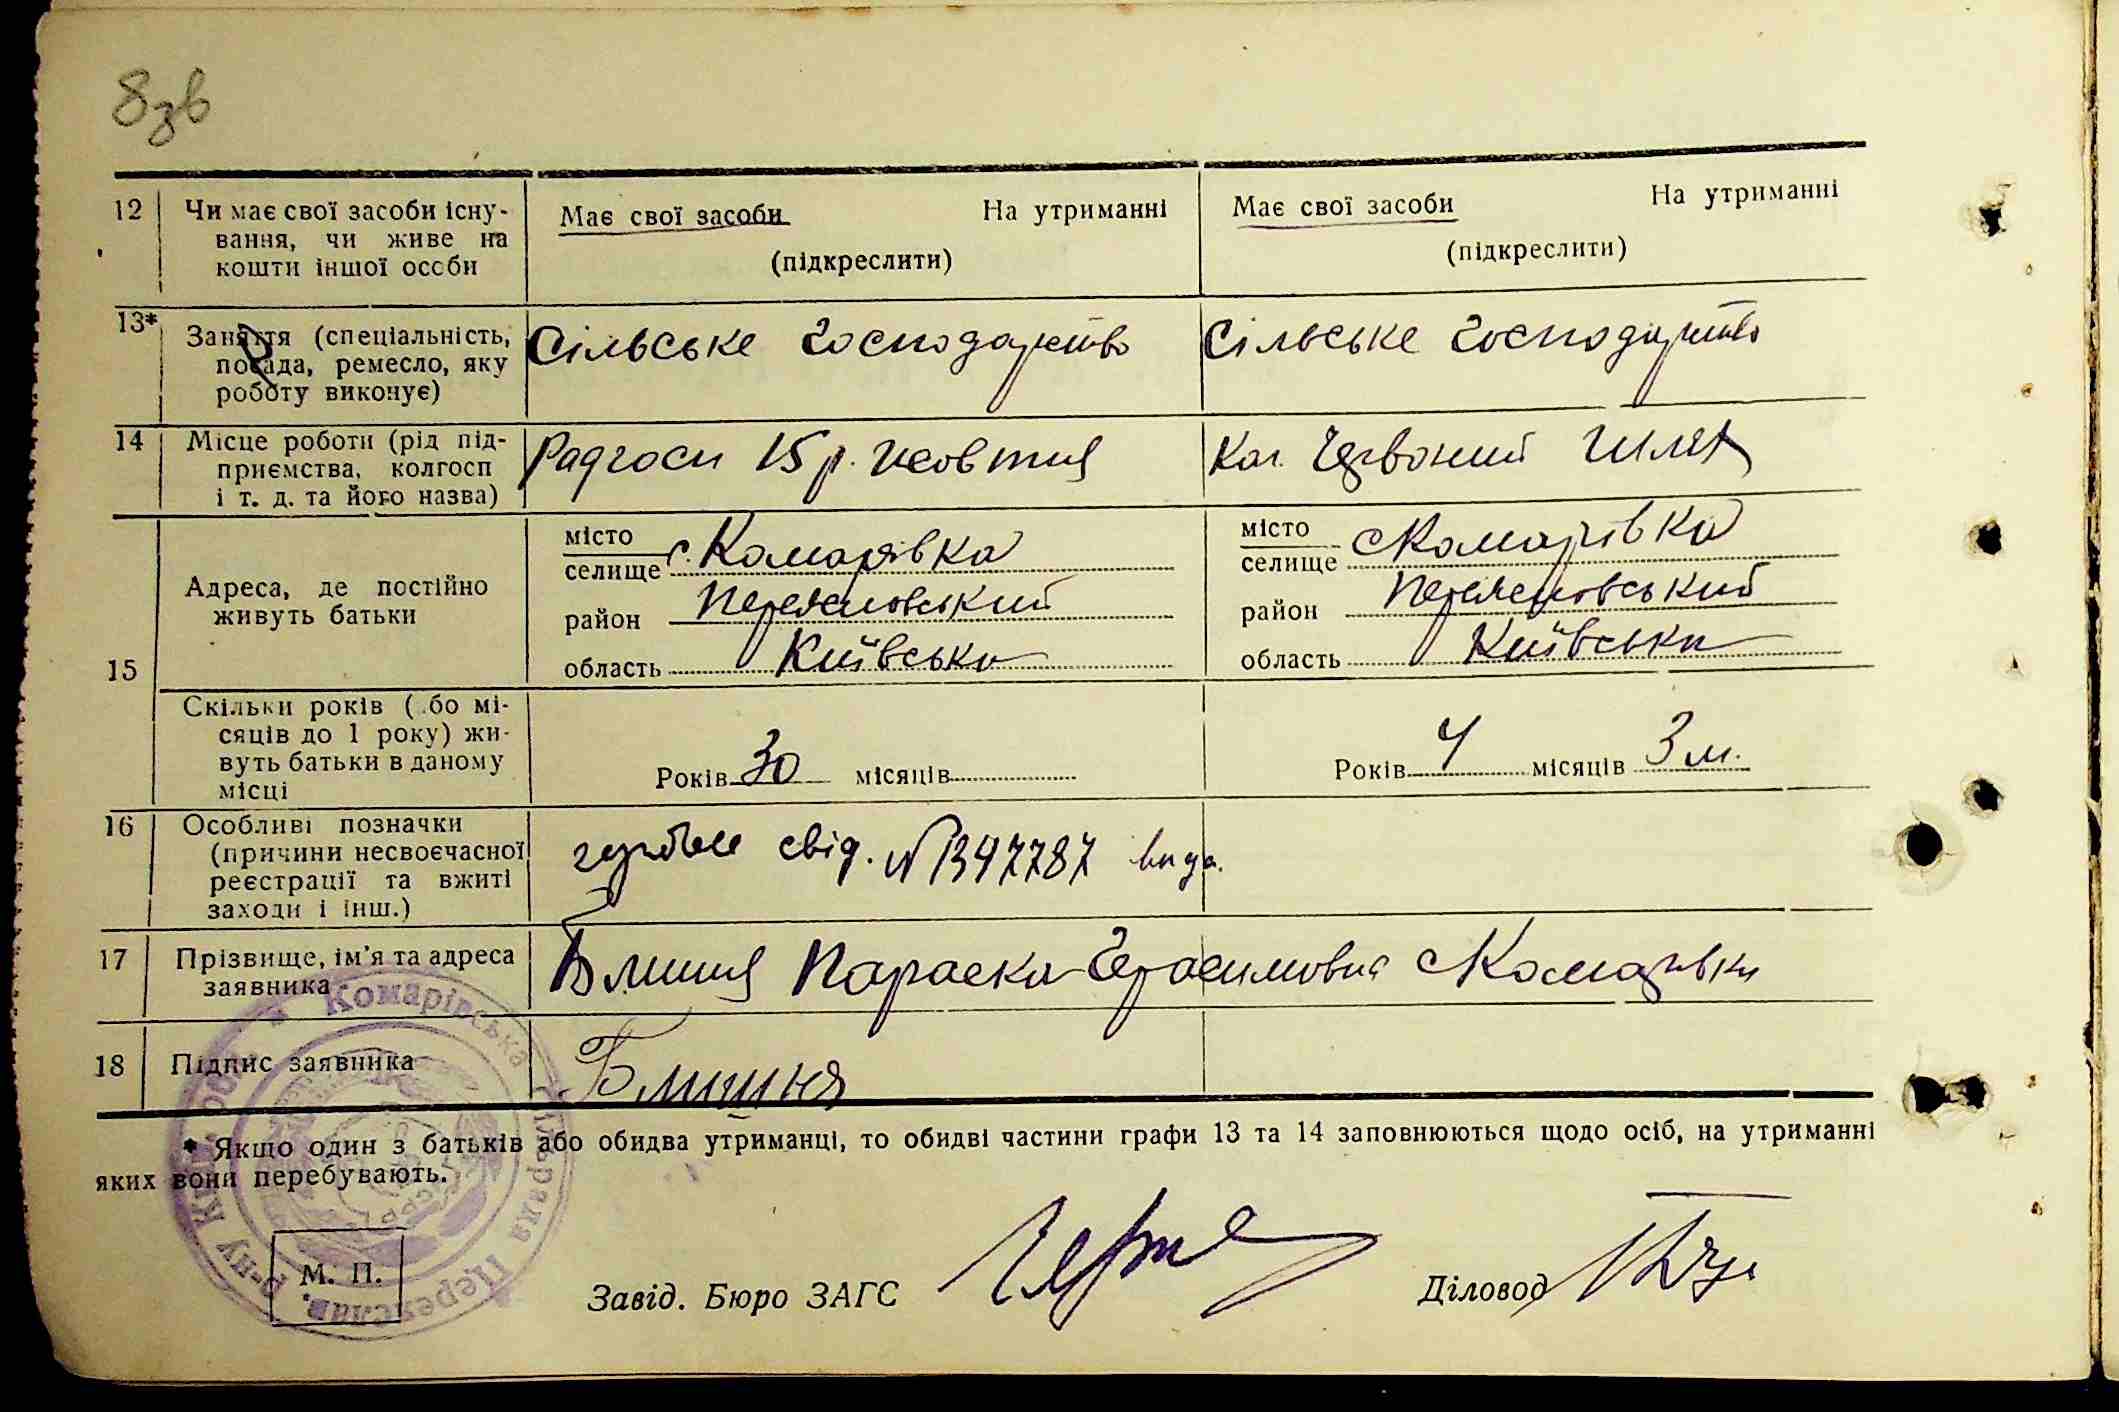 8зв
12 Чи має свої засоби існу-
вання, чи живе на
кошти іншої особи
Має свої засоби На утриманні
(підкреслити)
Має свої засоби На утриманні
(підкреслити)
13* Заняття (спеціальність,
посада, ремесло, яку
роботу виконує)
Сільське господарство
Сільське господарство
14 Місце роботи (рід під-
приємства, колгосп
і т. д. та його назва)
Радгосп 15 р. жовтня
Кол. Червоний шлях
15
Адреса, де постійно
живуть батьки
місто
селище с. Комарівка
район
область Київська
місто
селище с Комарівка
район
область Київська
Скільки років (або мі-
сяців до 1 року) жи-
вуть батьки в даному
місці
Років 30 місяців
Років 4 місяців 3 м.
16 Особливі позначки
(причини несвоєчасної
реєстрації та вжиті
заходи і інш.)
свід. № 347787 вида.
17 Прізвище, ім'я та адреса
заявника
Блишня Параска Герасимовна с Комарівка
18 Підпис заявника
Блишня
* Якщо один з батьків або обидва утриманці, то обидві частини графи 13 та 14 заповнюються щодо осіб, на утриманні
яких вони перебувають.
Комарівська сільрада Переяслав. р-ну
М. П.
Завід. Бюро ЗАГС
Діловод